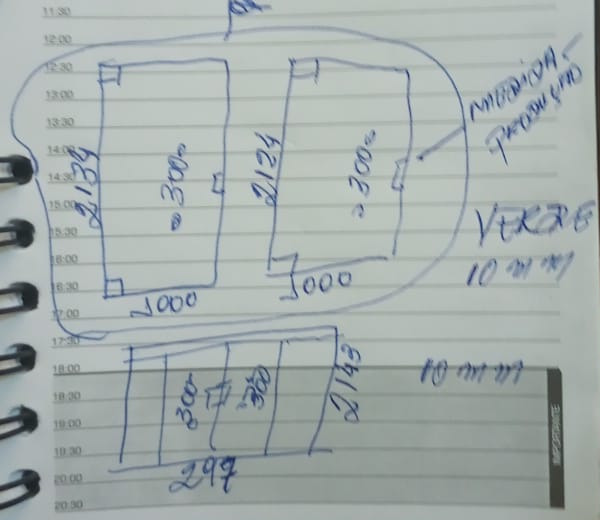 11:30
12:00
12:30
13:00
13:30
14:00
14:30
15:00
15:30
16:00
16:30
17:00
17:30
18:00
18:30
19:00
19:30
20:00
20:30
2134
300
2134
300
MEDIDA
PRODUÇÃO
VERDE
10 mm
1000
1000
300
300
2143
10 mm
297
IMPORTANTE